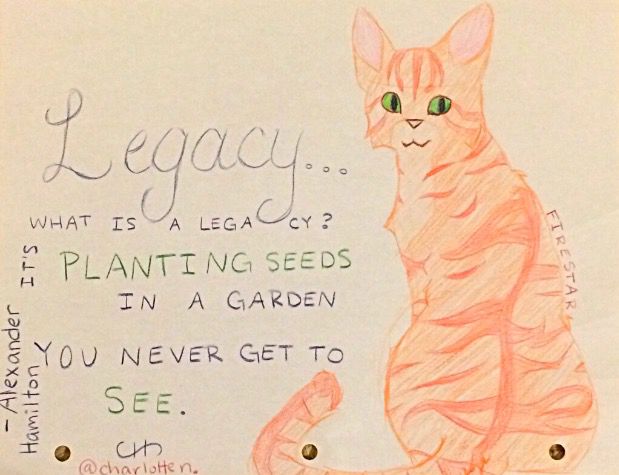 Legacy...
WHAT IS A LEGACY?
IT'S
PLANTING SEEDS
IN A GARDEN
YOU NEVER GET TO
SEE.
- Alexander
Hamilton
@charlotten.
FIRESTAR